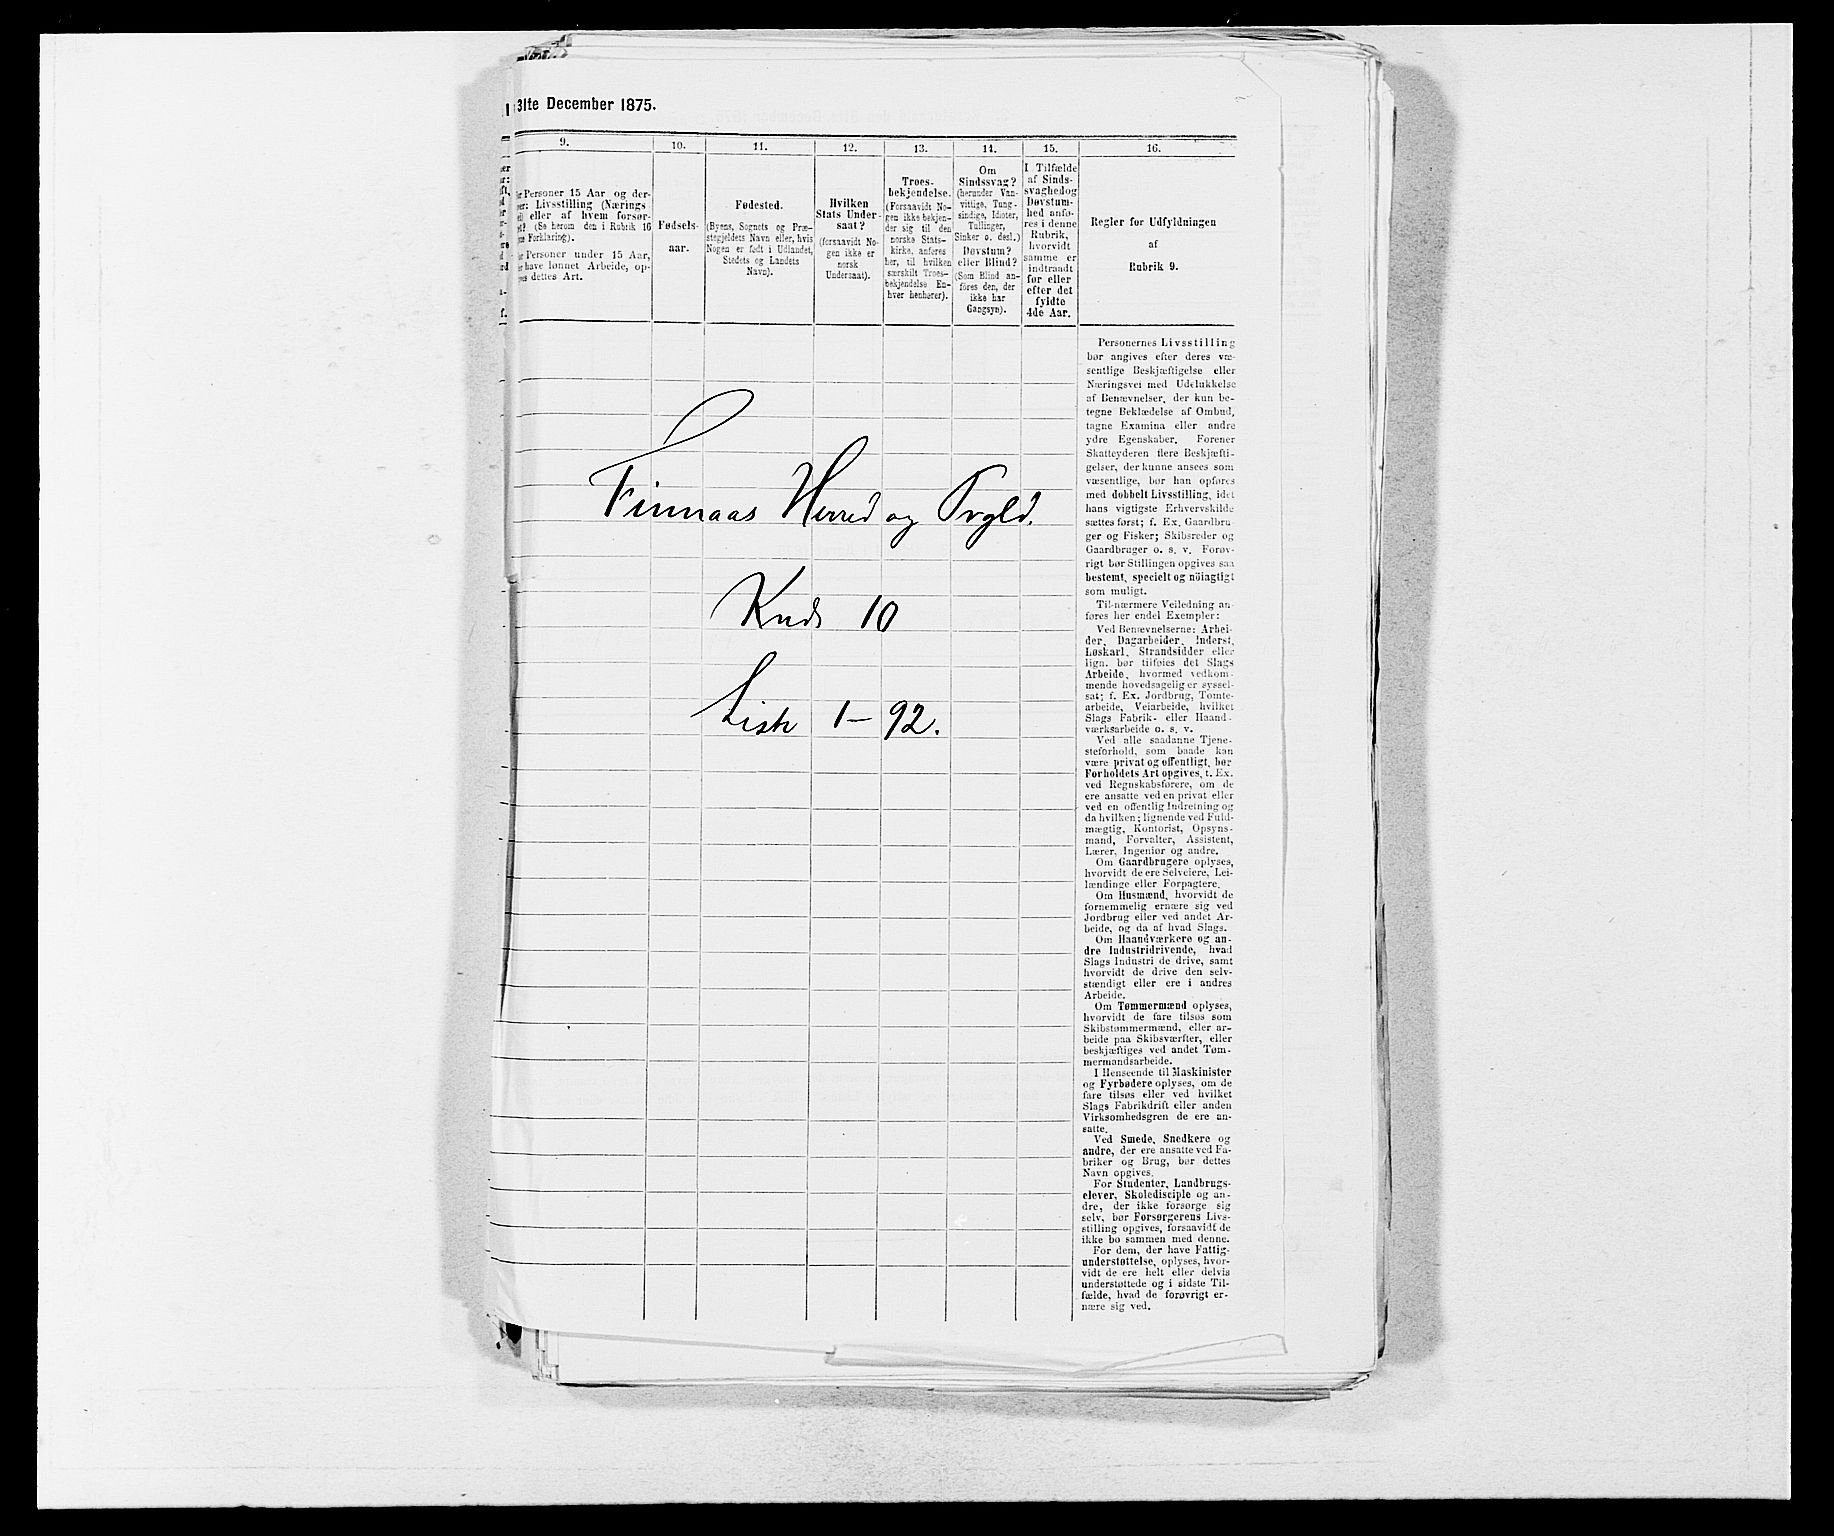 31te December 1875.
9.
Personer 15 Aar og der-
Livsstilling (Nærings
eller af hvem forsør-
(Se herom den i Rubrik 16
Forklaring).
Personer under 15 Aar,
have lønnet Arbeide, op-
dettes Art.
10.
Fødsels-
aar.
11.
Fødested.
(Byens, Sognets og Præ-
stegjeldets Navn eller, hvis
Nogen er født i Udlandet,
Stedets og Landets
Navn).
12.
Hvilken
Stats Under-
saat?
(forsaavidt No-
gen ikke er
norsk
Undersaat).
13.
Troes-
bekjendelse.
(Forsaavidt No-
gen ikke bekjen-
der sig til den
norske Stats-
kirke, anføres
her, til hvilken
særskilt Troes-
bekjendelse En-
hver henhører).
14.
Om
Sindssvag?
(herunder Van-
vittige, Tung-
sindige, Idioter,
Tullinger,
Sinker o. desl.)
Døvstum?
eller Blind?
(Som Blind an-
føres den, der
ikke har
Gangsyn).
15.
I Tilfælde
af Sinds-
svaghed og
Døvstum-
hed anfø-
res i denne
Rubrik,
hvorvidt
samme er
indtraadt
før eller
efter det
fyldte
4de Aar.
16.
Regler for Udfyldningen
af
Rubrik 9.
Finnaas Herred og Prgld.
Kreds 10
Liste 1-92.
Personernes Livsstilling
bør angives efter deres væ-
sentlige Beskjæftigelse eller
Næringsvei med Udelukkelse
af Benævnelser, der kun be-
tegne Beklædelse af Ombud,
tagne Examina eller andre
ydre Egenskaber. Forener
Skatteyderen flere Beskjæfti-
gelser, der kunne ansees som
væsentlige, bør han opføres
med dobbelt Livsstilling, idet
hans vigtigste Erhvervskilde
sættes først; f. Ex. Gaardbru-
ger og Fisker; Skibsreder og
Gaardbruger o. s. v. Forøv-
rigt bør Stillingen opgives saa
bestemt, specielt og nöiagtigt
som muligt.
Til nærmere Veiledning an-
føres her endel Exempler:
Ved Benævnelserne: Arbei-
der, Dagarbeider, Inderst,
Løskarl, Strandsidder eller
lign. bør tilføies det Slags
Arbeide, hvormed vedkom-
mende hovedsagelig er syssel-
sat; f. Ex. Jordbrug, Tomte-
arbeide, Veiarbeide, hvilket
Slags Fabrik- eller Haand-
værksarbeide o. s. v.
Ved alle saadanne Tjene-
steforhold, som baade kan
være privat og offentligt, bør
Forholdets Art opgives, t. Ex.
ved Regnskabsførere, om de
ere ansatte ved en privat eller
ved en offentlig Indretning og
da hvilken; lignende ved Fuld-
mægtig, Kontorist, Opsyns-
mand, Forvalter, Assistent,
Lærer, Ingeniør og andre.
Om Gaardbrugere oplyses,
hvorvidt de ere Selveiere, Lei-
lændinge eller Forpagtere.
Om Husmænd, hvorvidt de
fornemmelig ernære sig ved
Jordbrug eller ved andet Ar-
beide, og da af hvad Slags.
Om Haandværkere og an-
dre Industridrivende, hvad
Slags Industri de drive, samt
hvorvidt de drive den selv-
stændigt eller ere i andres
Arbeide.
Om Tømmermænd oplyses,
hvorvidt de fare tilsøs som
Skibstømmermænd, eller ar-
beide paa Skibsværfter, eller
beskjæftiges ved andet Tøm-
mermandsarbeide.
I Henseende til Maskinister
og Fyrbødere oplyses, om de
fare tilsøs eller ved hvilket
Slags Fabrikdrift eller anden
Virksomhedsgren de ere an-
satte.
Ved Smede, Snedkere og
andre, der ere ansatte ved Fa-
briker og Brug, bør dettes
Navn opgives.
For Studenter, Landbrugs-
elever, Skoledisciple og an-
dre, der ikke forsørge sig
selv, bør Forsørgerens Livs-
stilling opgives, forsaavidt de
ikke bo sammen med denne.
For dem, der have Fattig-
understøttelse, oplyses, hvor-
vidt de ere helt eller delvis
understøttede og i sidste Til-
fælde, hvad de forøvrigt er-
nære sig ved.